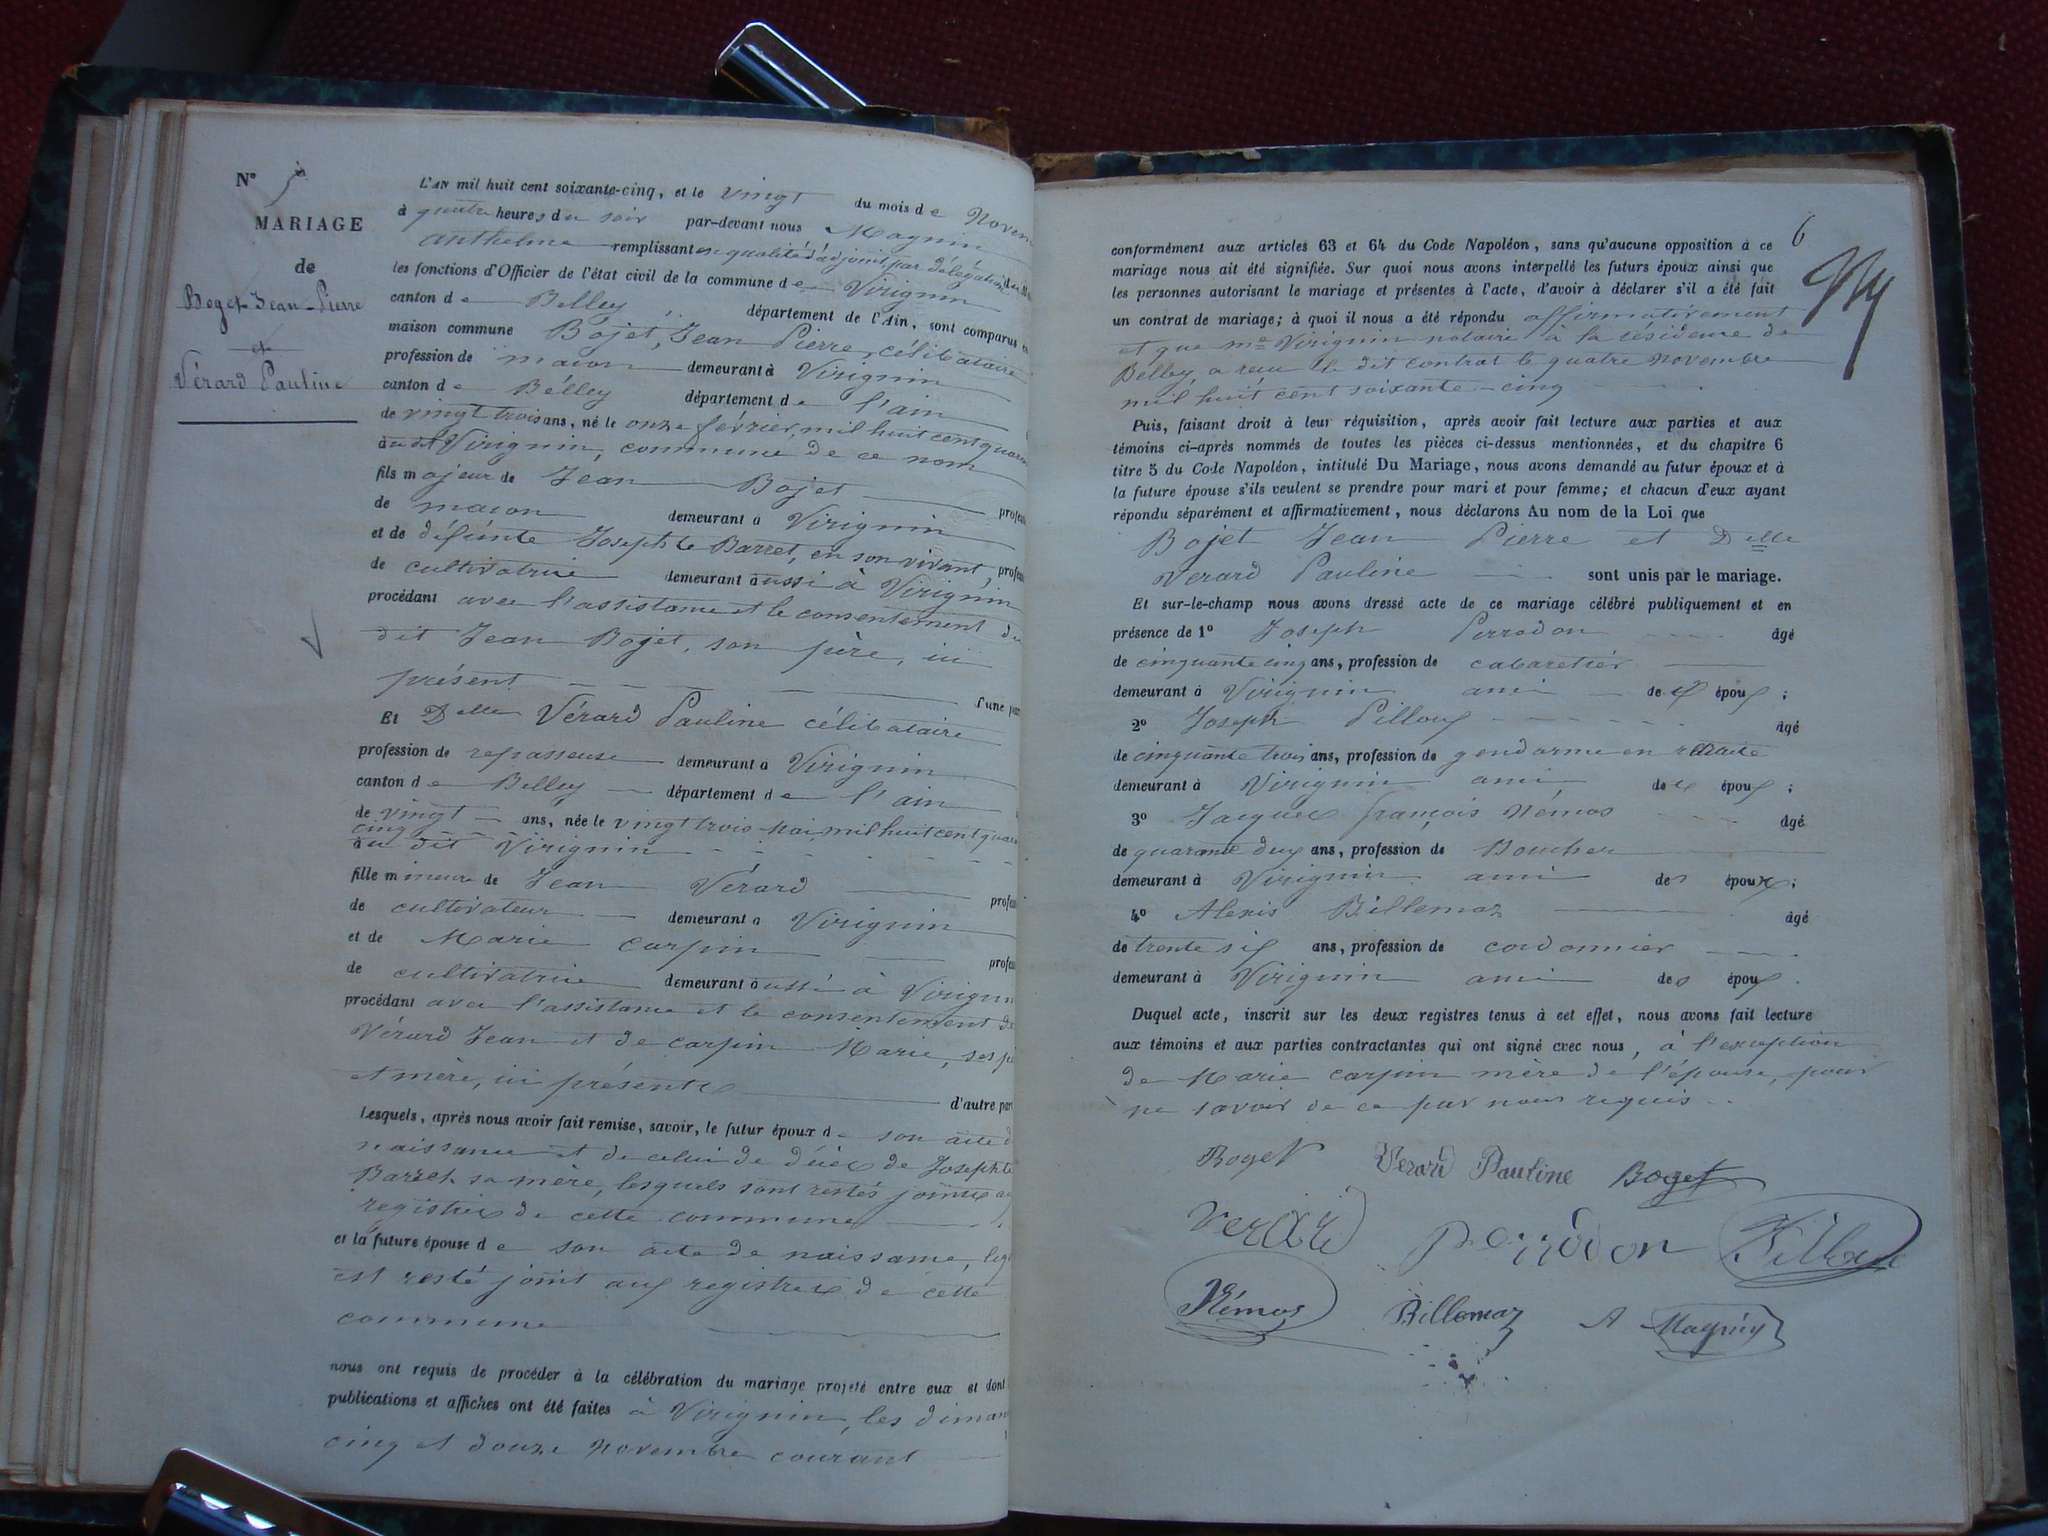 N° 5
MARIAGE
de
Boget Jean-Pierre
et
Vérard Pauline
L'AN mil huit cent soixante-cinq, et le vingt du mois de Novem
à quatre heures du soir par-devant nous Magnin
anthelme remplissant en qualité d'adjoint par délégation du M
les fonctions d'Officier de l'état civil de la commune de Virignin
canton de Belley, département de l'Ain, sont comparus en
maison commune Bojet, Jean Pierre, célibataire
profession de maçon demeurant à Virignin
canton de Bélley département de l'ain
de vingt trois ans, né le onze février, mil huit cent quaran
au dit Virignin, commune de ce nom
fils majeur de Jean Bojet profess
de maçon demeurant à Virignin
et de défunte Josephte Barret, en son vivant, profess
de cultivatrice demeurant aussi à Virignin
procédant avec l'assistance et le consentement du
dit Jean Bojet, son père, ici
présent d'une part
Et Delle Vérard Pauline célibataire
profession de repasseuse demeurant à Virignin
canton de Belley département de l'ain
de vingt ans, née le vingt trois Mai, mil huit cent quara
cinq
au dit Virignin
fille mineure de Jean Vérard profess
de cultivateur demeurant à Virignin
et de Marie Carpin profess
de cultivatrice demeurant aussi à Virignin
procédant avec l'assistance et le consentement de
Vérard Jean et de Carpin Marie, ses pè
et mère, ici présents d'autre part
Lesquels, après nous avoir fait remise, savoir, le futur époux de son acte d
naissance et de celui de décès de Josephte
Barret sa mère, lesquels sont restés joints au
registres de cette commune
et la future épouse de son acte de naissance, leq
est resté joint aux registres de cette
commune
nous ont requis de procéder à la célébration du mariage projeté entre eux et dont
publications et affiches ont été faites à Virignin, les diman
cinq et douze Novembre courant
6
conformément aux articles 63 et 64 du Code Napoléon, sans qu'aucune opposition à ce
mariage nous ait été signifiée. Sur quoi nous avons interpellé les futurs époux ainsi que
les personnes autorisant le mariage et présentes à l'acte, d'avoir à déclarer s'il a été fait
un contrat de mariage; à quoi il nous a été répondu affirmativement
et que Me Virignin notaire à la résidence de
Belley a reçu le dit contrat le quatre Novembre
mil huit cent soixante-cinq
Puis, faisant droit à leur réquisition, après avoir fait lecture aux parties et aux
témoins ci-après nommés de toutes les pièces ci-dessus mentionnées, et du chapitre 6
titre 5 du Code Napoléon, intitulé Du Mariage, nous avons demandé au futur époux et à
la future épouse s'ils veulent se prendre pour mari et pour femme; et chacun d'eux ayant
répondu séparément et affirmativement, nous déclarons Au nom de la Loi que
Bojet Jean Pierre et Delle
Verard Pauline sont unis par le mariage.
Et sur-le-champ nous avons dressé acte de ce mariage célébré publiquement et en
présence de 1° Joseph Perrodon âgé
de cinquante cinq ans, profession de cabaretier
demeurant à Virignin ami de l'époux;
2° Joseph Pilloux âgé
de cinquante trois ans, profession de gendarme en retraite
demeurant à Virignin ami des époux;
3° Jacques françois Némos âgé
de quarante deux ans, profession de Boucher
demeurant à Virignin ami des époux;
4° Alexis Billemaz âgé
de trente six ans, profession de cordonnier
demeurant à Virignin ami des époux.
Duquel acte, inscrit sur les deux registres tenus à cet effet, nous avons fait lecture
aux témoins et aux parties contractantes qui ont signé avec nous, à l'exception
de Marie Carpin mère de l'épouse, pour
ne savoir de ce par nous requis
Boget Verard Pauline Boget
Verard Perrodon Pilloux
Némos Billemaz A Magnin